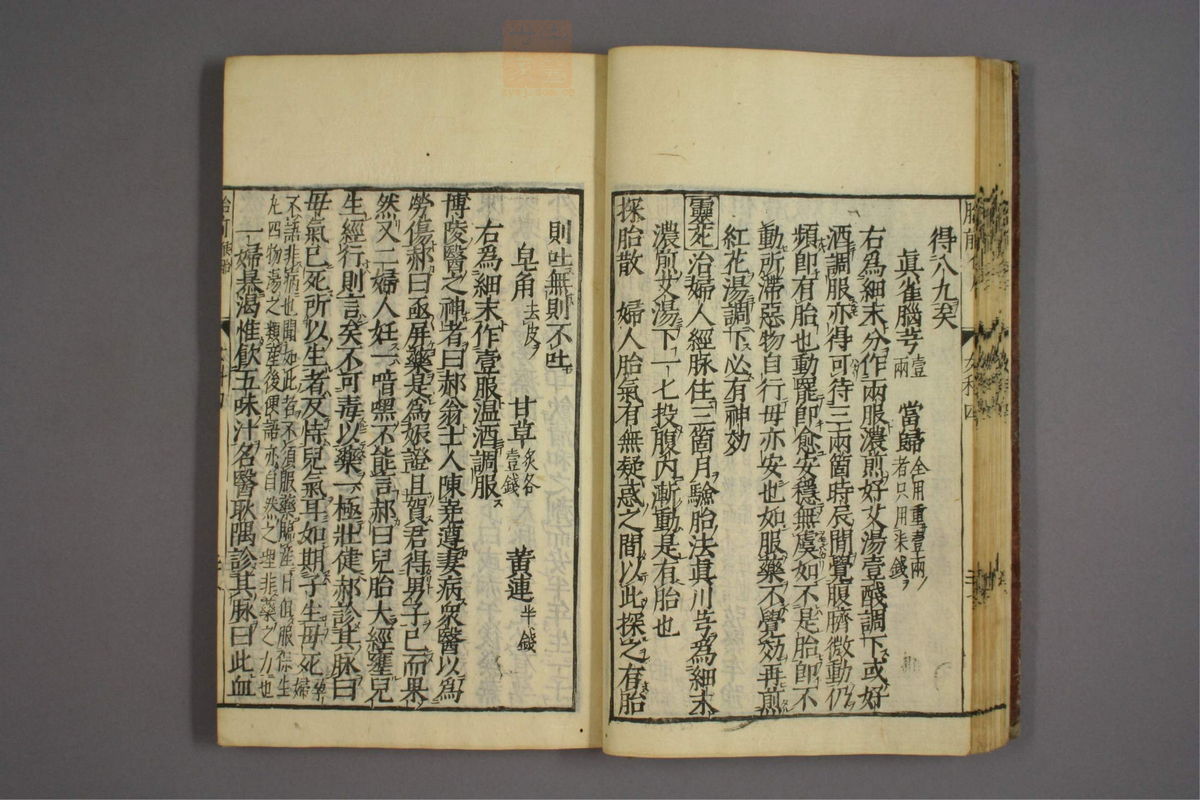 得八九矣
眞雀腦芎壹兩 當歸全用重壹兩者只用柒錢
右爲細末分作兩服濃煎好艾湯壹醆調下或好
酒調服亦得可待三兩箇時辰間覺腹臍微動仍
頻即有胎也動罷即愈安穩無虞如不是胎即不
動所滯惡物自行母亦安也如服藥不覺効再煎
紅花湯調下必有神効
靈苑治婦人經脉住三箇月驗胎法眞川芎爲細末
濃煎艾湯下一匕投腹內漸動是有胎也
探胎散 婦人胎氣有無疑惑之間以此探之有胎
則吐無則不吐
皂角去皮 甘草炙各壹錢 黃連半錢
右爲細末作壹服温酒調服
博陵醫之神者曰郝翁士人陳堯遵妻病衆醫以爲
勞傷郝曰亟屏藥是爲娠證且賀君得男子已而果
然又二婦人妊一喑嘿不能言郝曰兒胎大經壅兒
生經行則言矣不可毒以藥一極壯健郝診其脉曰
母氣已死所以生者反恃兒氣耳如期子生母死孕婦
不語非病也聞如此者不須服藥臨產日但服保生
丸四物湯之類產後便語亦自然之理非藥之力也
一婦暴渴惟飲五味汁名醫耿隅診其脉曰此血